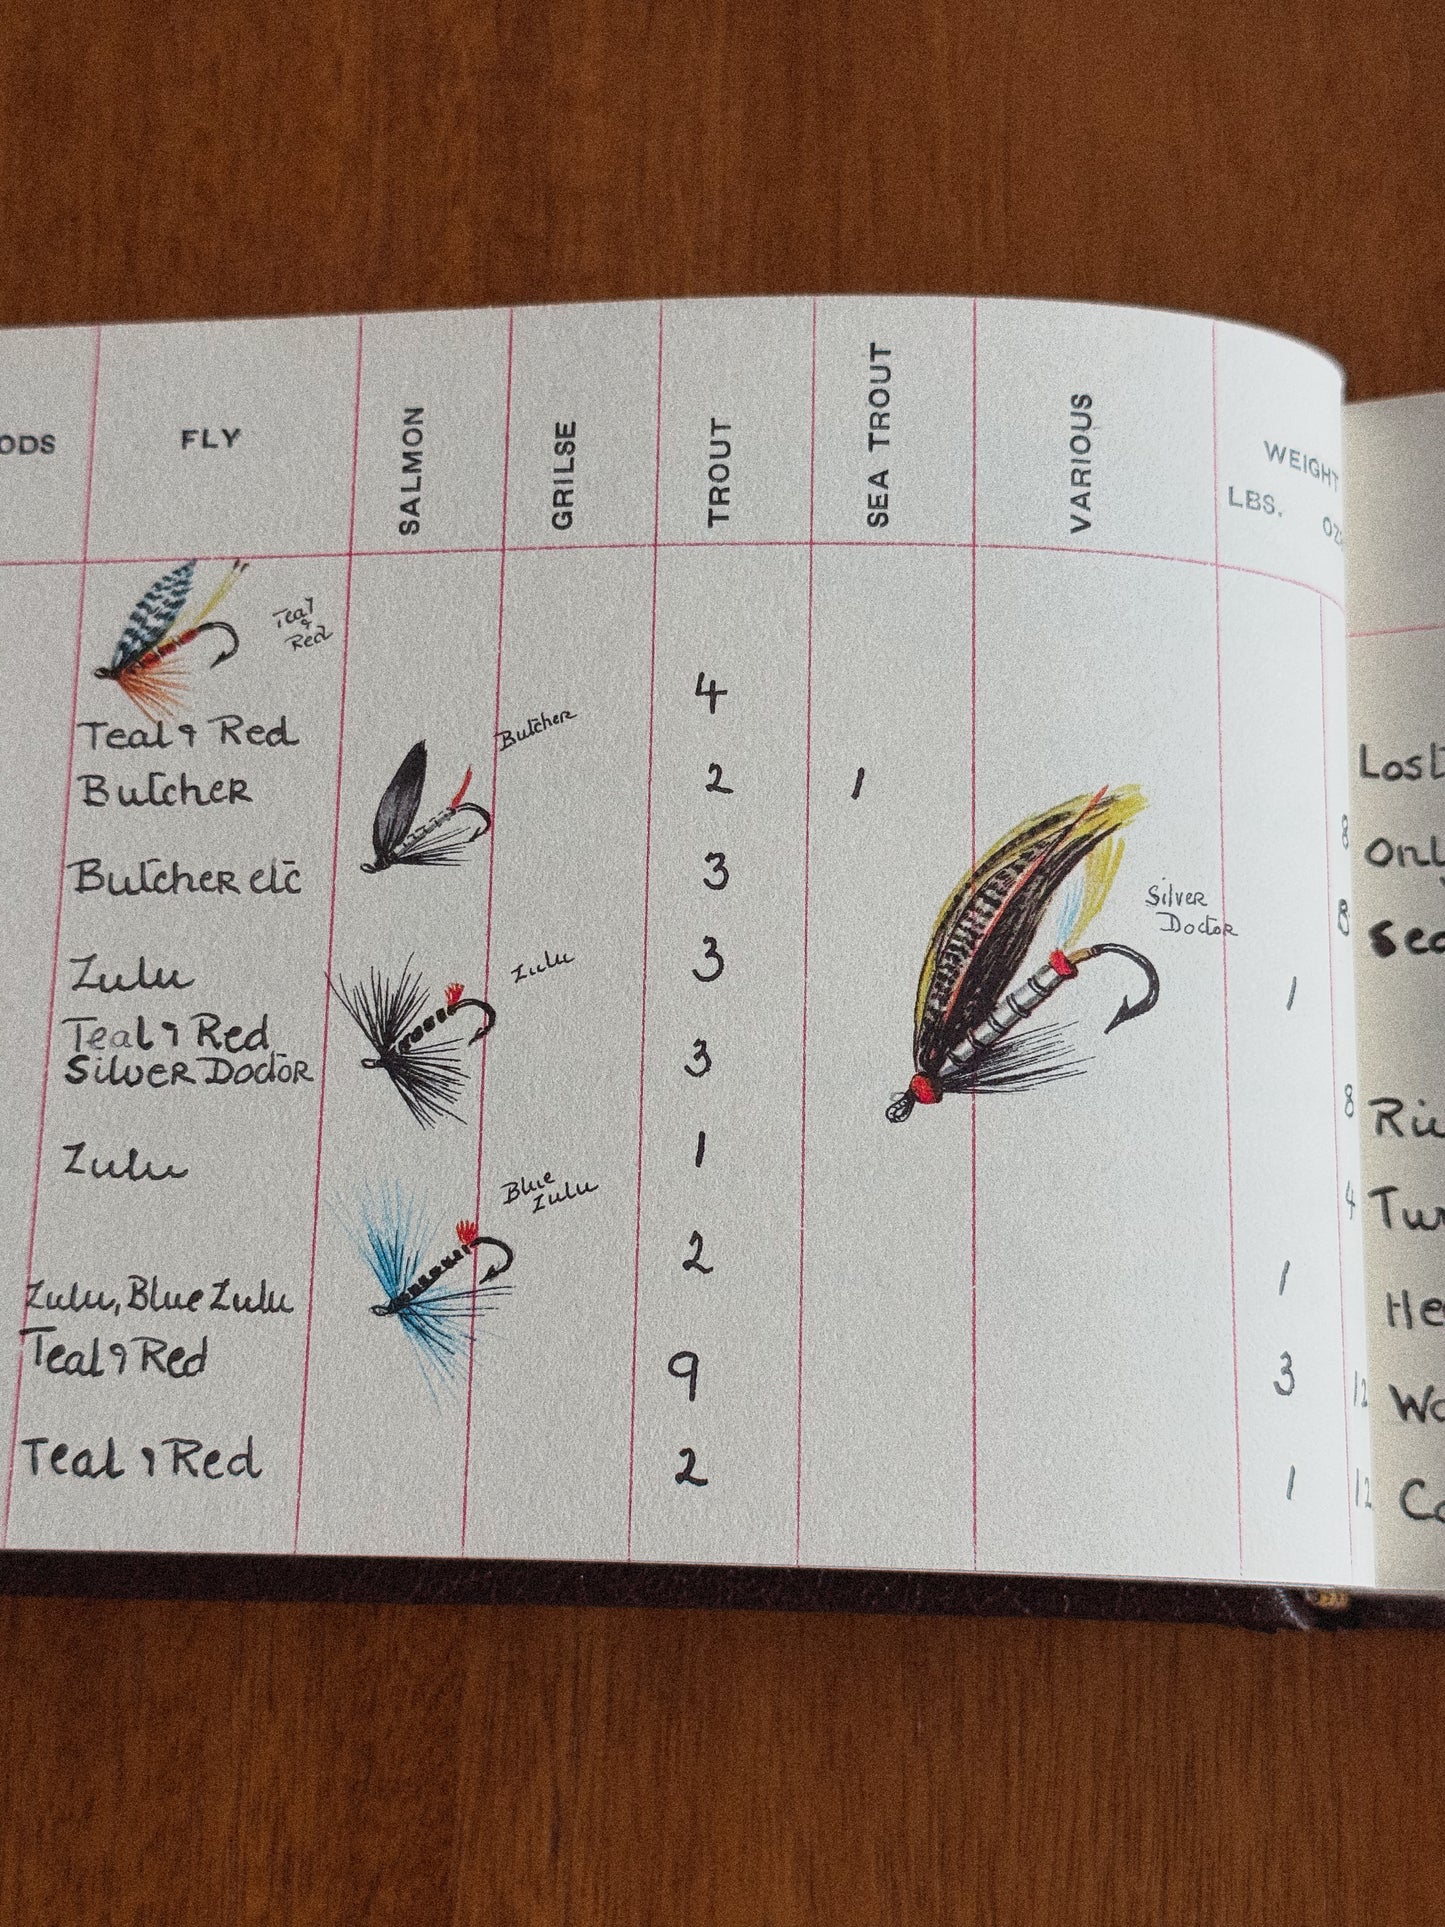 ODS FLY SALMON GRILSE TROUT SEA TROUT VARIOUS WEIGHT
LBS. OZ
Teal
&
Red
4
Teal & Red
Butcher
Butcher 2 1
Lost
8
Butcher etc 3
Silver
Doctor
8
Zulu
Zulu 3 1
Teal & Red
Silver Doctor 3
8
Zulu 1
4
Blue
Zulu
2 1
Zulu, Blue Zulu
Teal & Red 9 3 12
Teal & Red 2 1 12